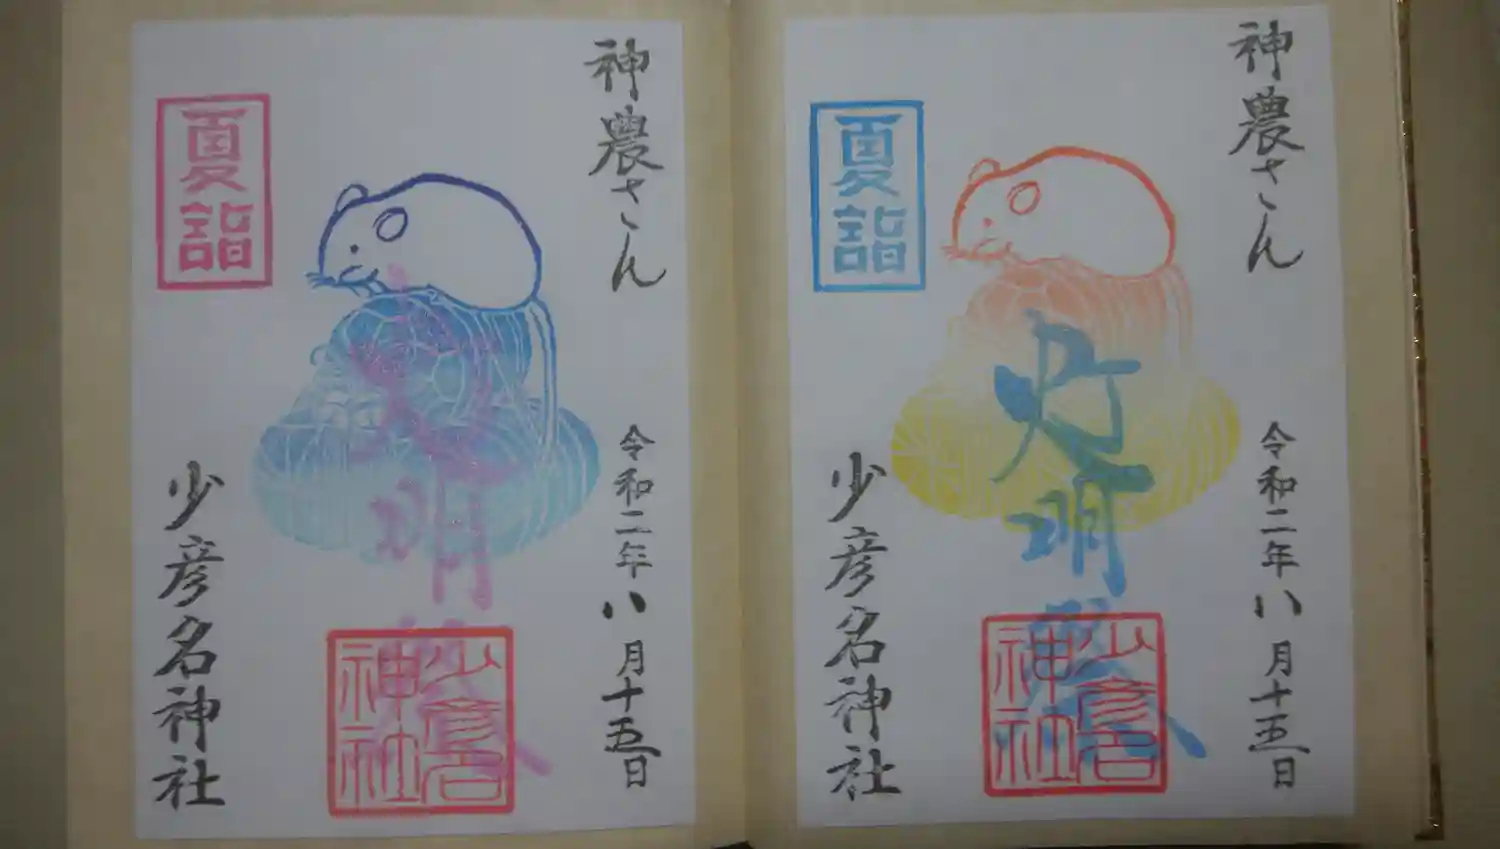 神農さん
令和二年八月十五日
灯明祭
少彦名
神社
夏詣
少彦名神社
神農さん
令和二年八月十五日
灯明祭
少彦名
神社
夏詣
少彦名神社